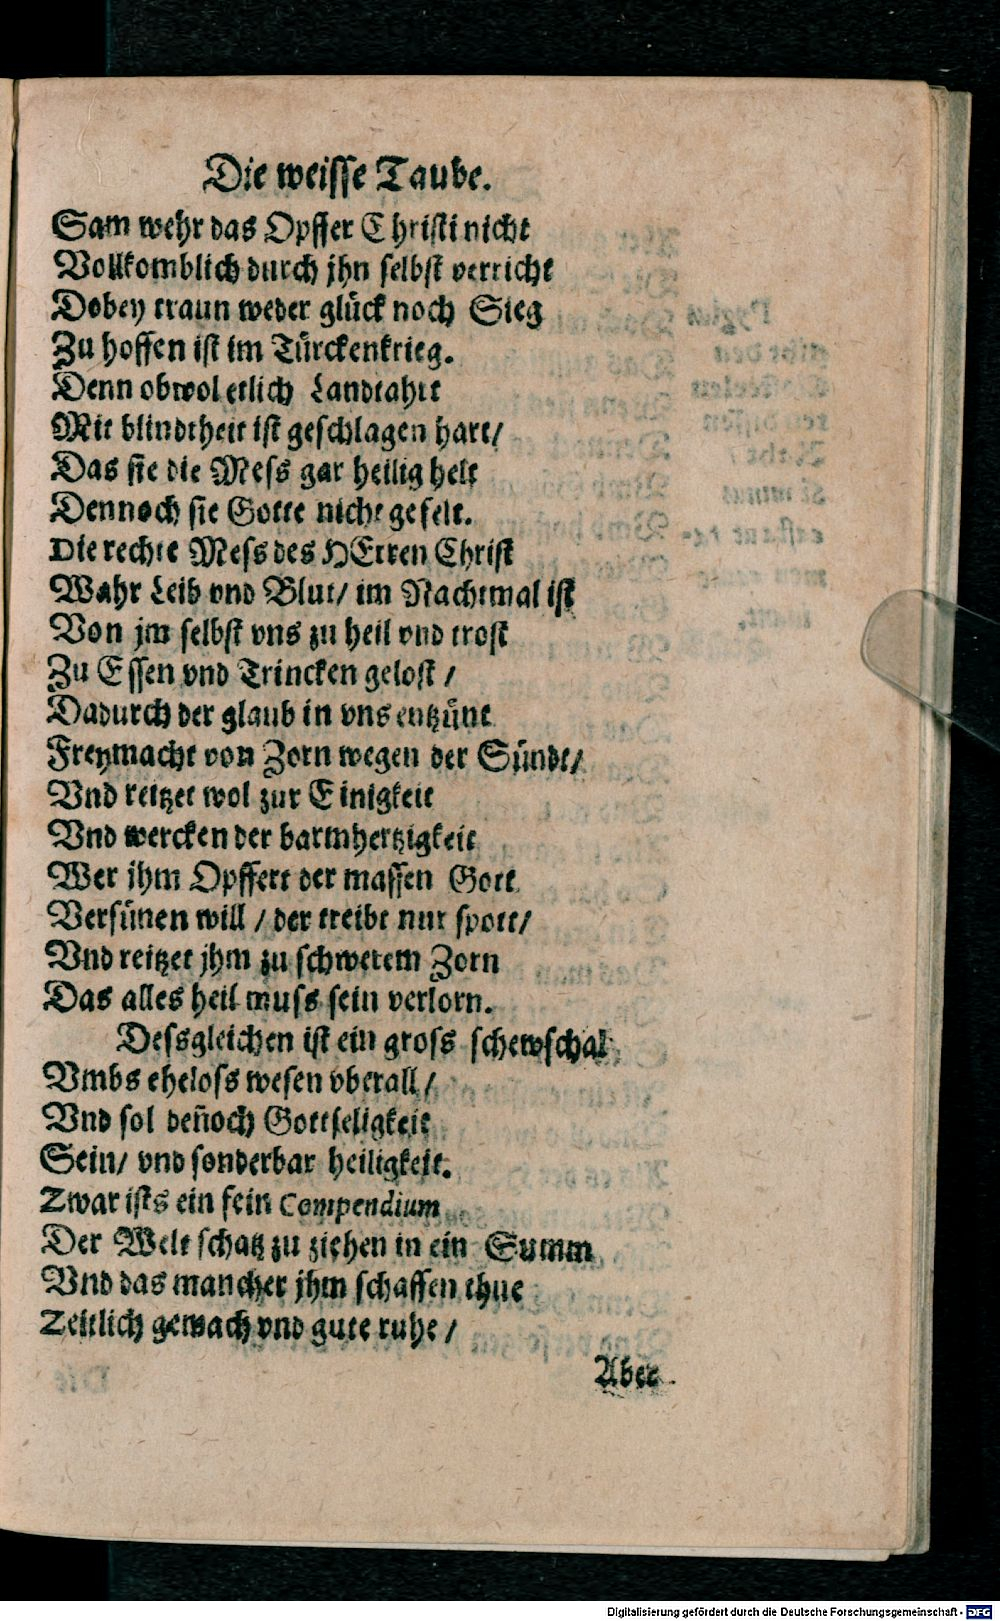 Die weisse Taube.
Sam wehr das Opffer Christi nicht
Vollkomblich durch jhn selbst verricht
Dobey traun weder glück noch Sieg
Zu hoffen ist im Türckenkrieg.
Denn obwol etlich Landtahrt
Mit blindtheit ist geschlagen hart/
Das sie die Mess gar heilig helt
Dennoch sie Gotte nicht gefelt.
Die rechte Mess des HErren Christ
Wahr Leib vnd Blut/ im Nachtmal ist
Von jm selbst vns zu heil vnd trost
Zu Essen vnd Trincken gelost /
Dadurch der glaub in vns entzünt
Freymacht von Zorn wegen der Sündt/
Vnd reitzet wol zur Einigkeit
Vnd wercken der barmhertzigkeit
Wer jhm Opffert der massen Gott
Versünen will / der treibt nur spott/
Vnd reitzet jhm zu schwerem Zorn
Das alles heil muss sein verlorn.
Dessgleichen ist ein gross schewschal
Vmbs eheloss wesen vberall /
Vnd sol deñoch Gottseligkeit
Sein/ vnd sonderbar heiligkeit.
Zwar ists ein fein Compendium
Der Welt schatz zu ziehen in ein Summ
Vnd das mancher jhm schaffen thue
Zeitlich gewach vnd gute ruhe /
Aber
Digitalisierung gefördert durch die Deutsche Forschungsgemeinschaft - DFG